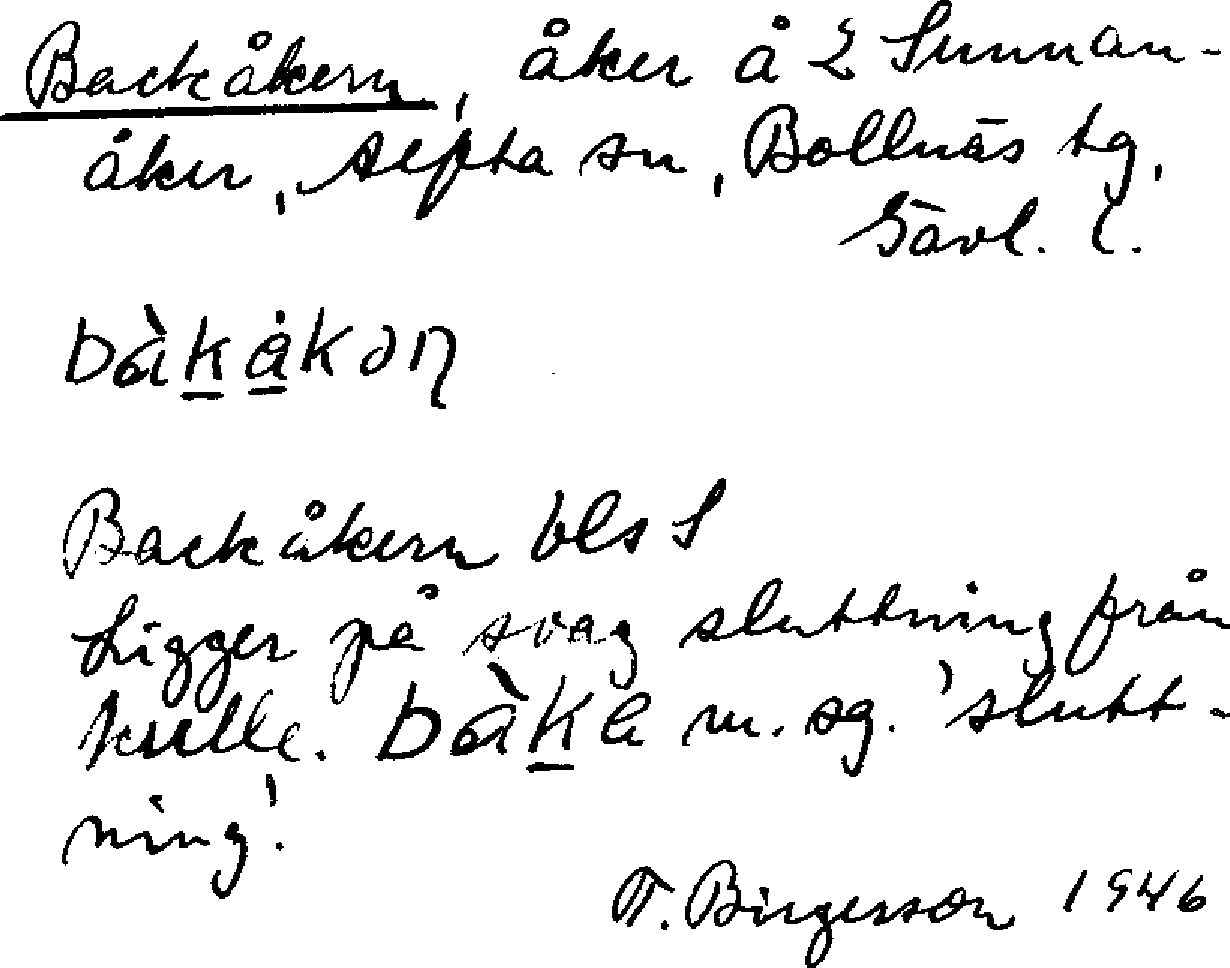 Backåkern, åker å 2 Sunnan-
åker, Alfta sn, Bollnäs tg,
Gävl. l.
bàkåkəɳ
Backåkern bls S
Ligger på svag sluttning från
kulle. bàka m. sg. 'slutt-
ning'.
T. Birgersson 1946